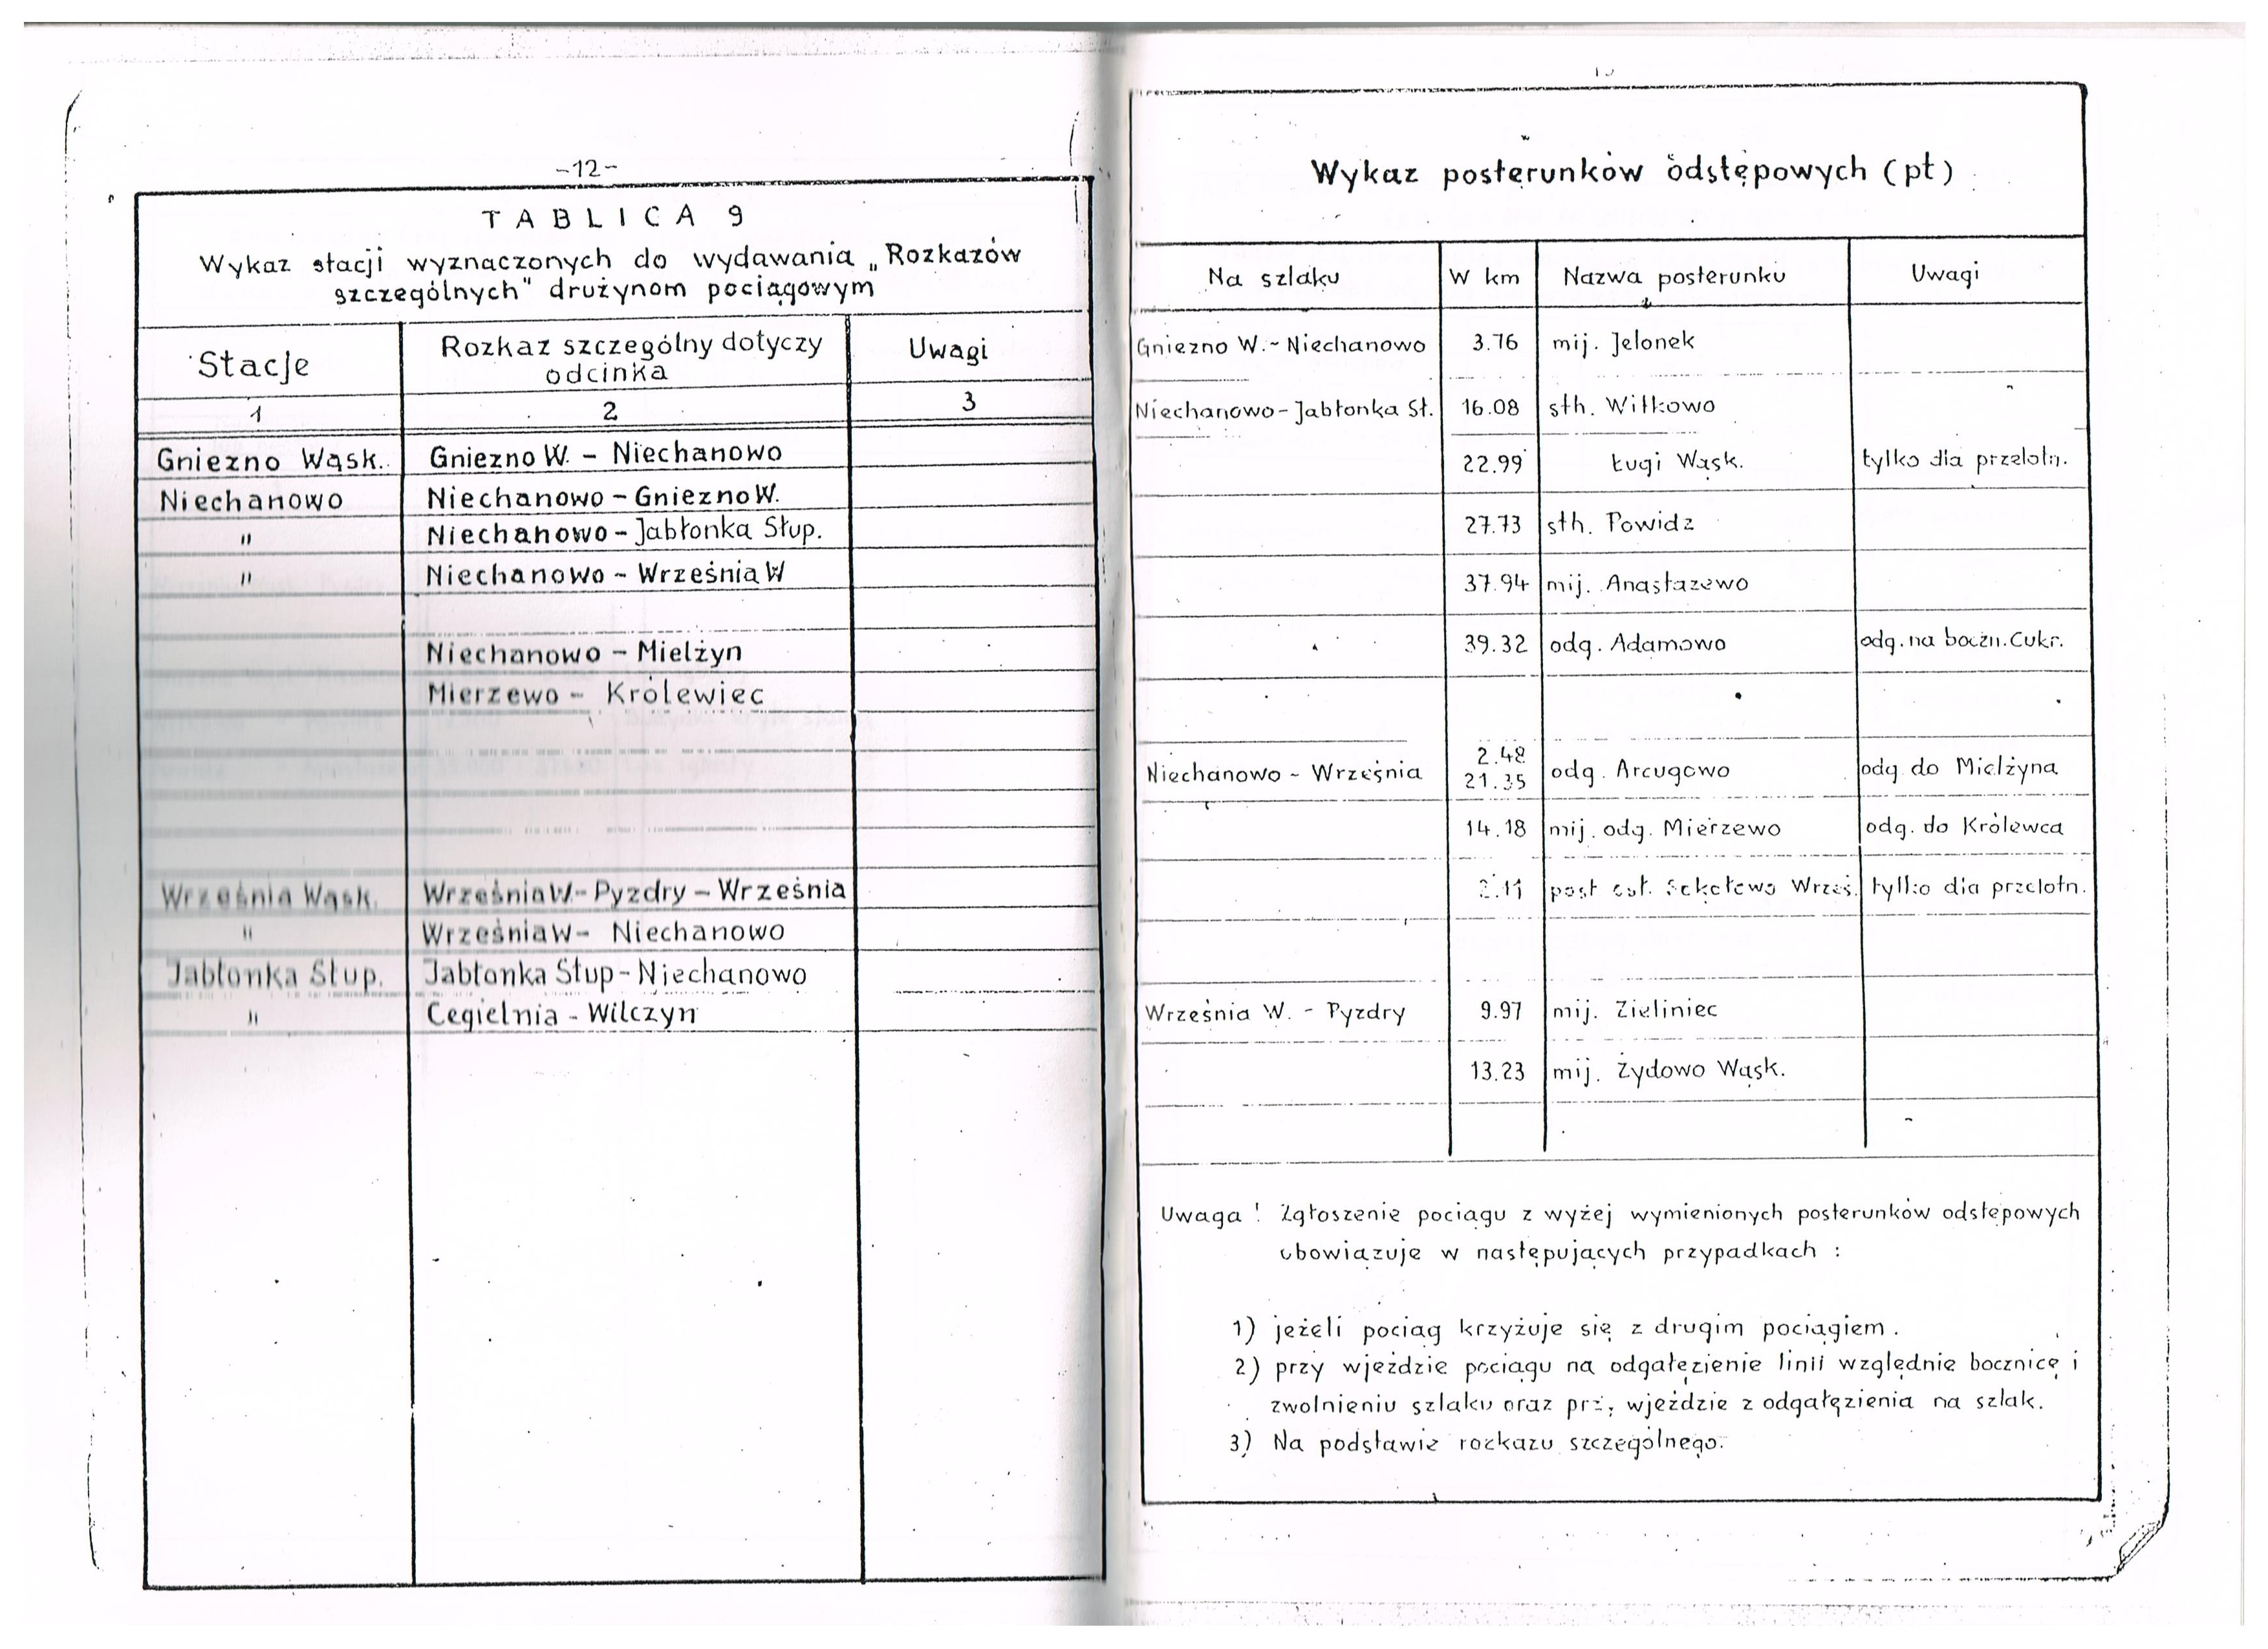 -12-
TABLICA 9
Wykaz stacji wyznaczonych do wydawania „Rozkazów
szczególnych" drużynom pociągowym
Stacje Rozkaz szczególny dotyczy Uwagi
odcinka
1 2 3
Gniezno Wąsk. Gniezno W. - Niechanowo
Niechanowo Niechanowo - Gniezno W.
" Niechanowo - Jabłonka Słup.
" Niechanowo - Września W
Niechanowo - Mielżyn
Mierzewo - Królewiec
Września Wąsk. Września W - Pyzdry - Września
" Września W - Niechanowo
Jabłonka Słup. Jabłonka Słup - Niechanowo
" Cegielnia - Wilczyn
Wykaz posterunków odstępowych (pt)
Na szlaku W km Nazwa posterunku Uwagi
Gniezno W. - Niechanowo 3.76 mij. Jelonek
Niechanowo - Jabłonka Sł. 16.08 sth. Witkowo
22.99 Ługi Wąsk. tylko dla przelotn.
27.73 sth. Powidz
37.94 mij. Anastazewo
39.32 odg. Adamowo odg. na boczn. Cukr.
2.48
Niechanowo - Września 21.35 odg. Arcugowo odg. do Mielżyna
14.18 mij. odg. Mierzewo odg. do Królewca
post Wrześ. tylko dla przelotn.
Września W. - Pyzdry 9.97 mij. Zieliniec
13.23 mij. Żydowo Wąsk.
Uwaga! Zgłoszenie pociągu z wyżej wymienionych posterunków odstępowych
obowiązuje w następujących przypadkach :
1) jeżeli pociąg krzyżuje się z drugim pociągiem.
2) przy wjeździe pociągu na odgałęzienie linii względnie bocznicę i
zwolnieniu szlaku oraz wjeździe z odgałęzienia na szlak.
3) Na podstawie rozkazu szczególnego.